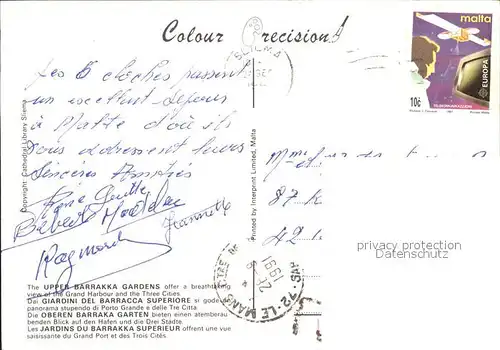 Colour Precision
malta
EUROPA
10c
SLIEMA
Les 5 cloches passent
un excellent séjour
à Malte d'où ils
vous adressent leurs
Sincères Amitiés
Jeannette
Raymond
Copyright: Cathedral Library Sliema
Printed by Interprint Limited, Malta
Mme
87
42
privacy protection
Datenschutz
1991
72-LE MANS
The UPPER BARRAKKA GARDENS offer a breathtaking
view of the Grand Harbour and the Three Cities
Dai GIARDINI DEL BARRACCA SUPERIORE si gode
panorama stupendo di Porto Grande e delle Tre Citta
Die OBEREN BARRAKA GARTEN bieten einen atemberau
benden Blick auf den Hafen und die Drei Städte.
Les JARDINS DU BARRAKKA SUPERIEUR offrent une vue
saisissante du Grand Port et des Trois Cités